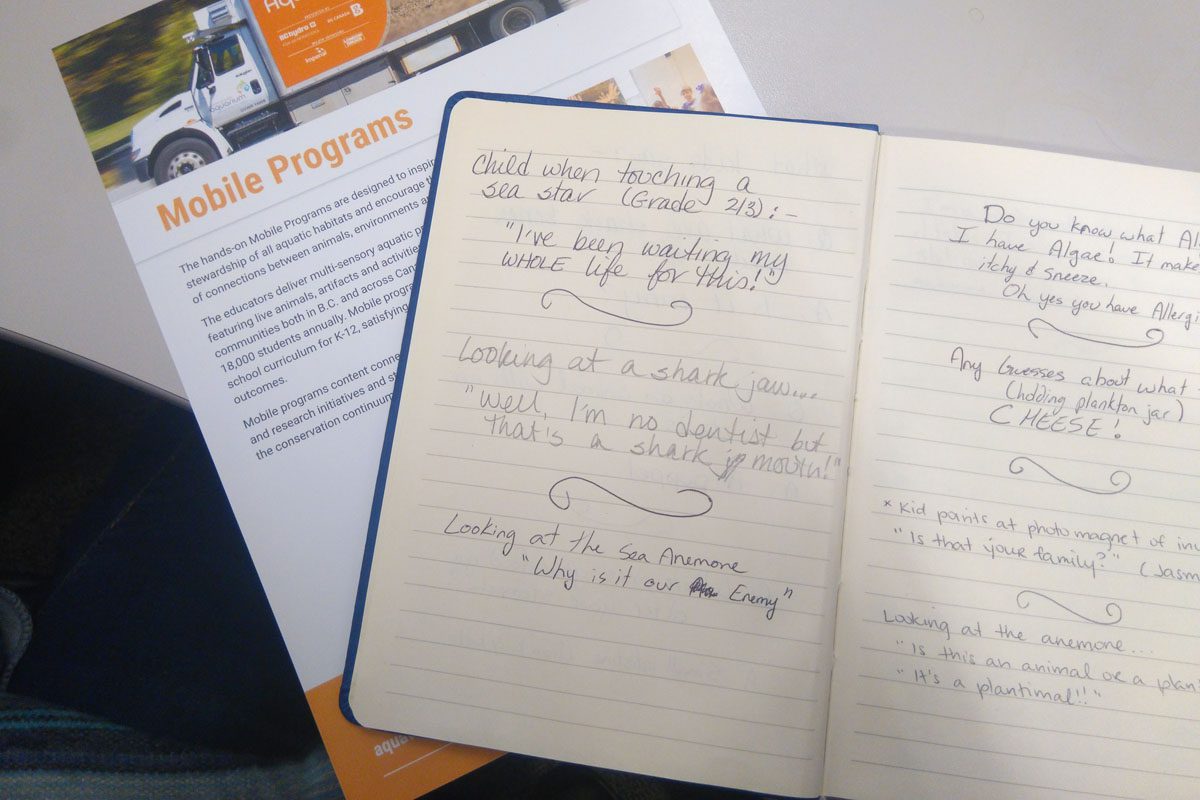 Aq
BChydro
Imperial
aquarium
Mobile Programs
The hands-on Mobile Programs are designed to inspi
stewardship of all aquatic habitats and encourage th
of connections between animals, environments a
The educators deliver multi-sensory aquatic p
featuring live animals, artifacts and activities
communities both in B.C. and across Can
18,000 students annually. Mobile progra
school curriculum for K-12, satisfying
outcomes.
Mobile programs content conne
and research initiatives and st
the conservation continuum
aqua
Child when touching a
sea star (Grade 2/3) :-
"I've been waiting my
WHOLE life for this!"
Looking at a shark jaw...
"Well, I'm no dentist but
that's a shark mouth!"
Looking at the Sea Anemone
"Why is it our Enemy"
Do you know what Al
I have Algae! It make
itchy & sneeze.
Oh yes you have Allergi
Any Guesses about what
(holding plankton jar)
CHEESE!
* Kid points at photo magnet of inv
"Is that your family?" (Jasm
Looking at the anemone...
"Is this an animal or a plan
"It's a plantimal!!"